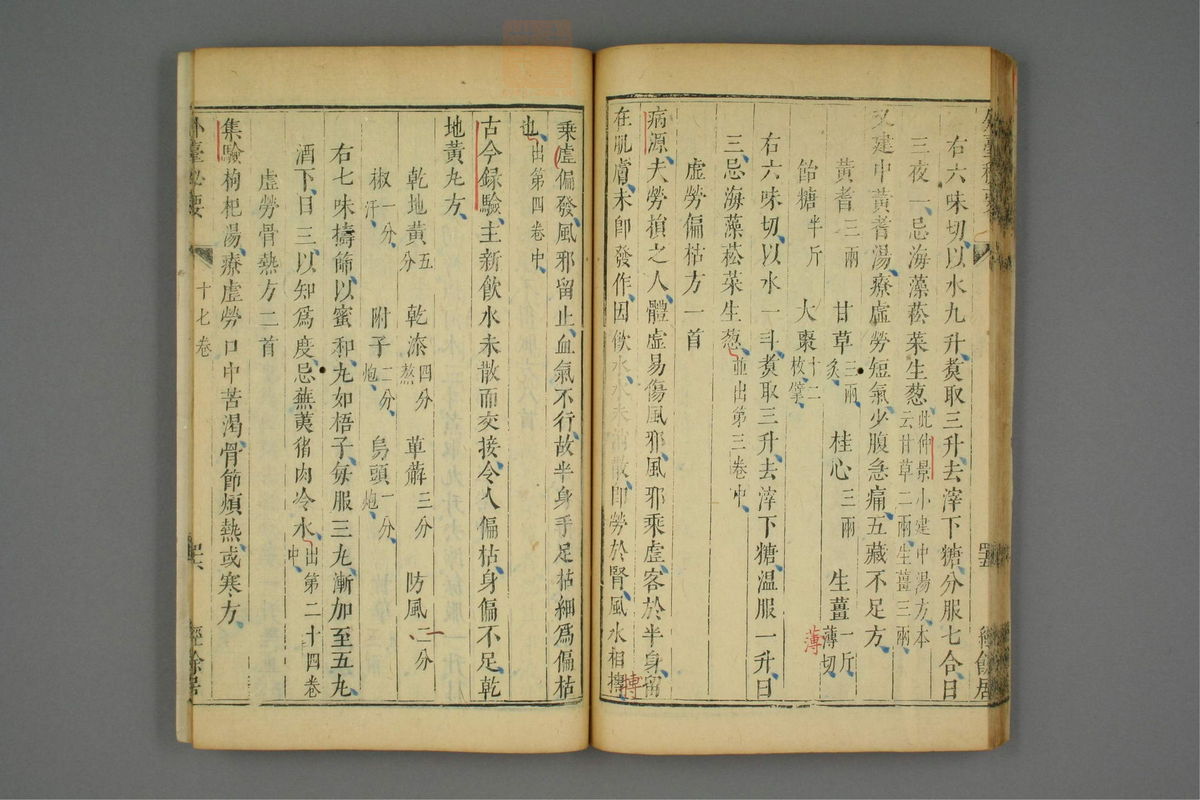 右六味切以水九升煑取三升去滓下糖分服七合日
三夜一忌海藻菘菜生葱此仲景小建中湯方本云甘草二兩生薑三兩
又建中黃耆湯療虛勞短氣少腹急痛五藏不足方
黃耆三兩 甘草三兩炙 桂心三兩 生薑一斤薄切
薄
飴糖半斤 大棗十二枚擘
右六味切以水一斗煑取三升去滓下糖温服一升日
三忌海藻菘菜生葱並出第三卷中
虛勞偏枯方一首
病源夫勞損之人體虛易傷風邪風邪乘虛客於半身留
在肌膚未即發作因飲水水未消散即勞於腎風水相搏
摶
乘虛偏發風邪留止血氣不行故半身手足枯細爲偏枯
也出第四卷中
古今錄驗主新飲水未散而交接令人偏枯身偏不足乾
地黃丸方
乾地黃五分 乾漆四分熬 萆薢三分 防風二分
椒一分汗 附子二分炮 烏頭一分炮
右七味擣篩以蜜和丸如梧子每服三丸漸加至五丸
酒下日三以知爲度忌蕪荑猪肉冷水出第二十四卷中
虛勞骨熱方二首
集驗枸杞湯療虛勞口中苦渴骨節煩熱或寒方
外臺秘要 十七卷 四六 經餘居